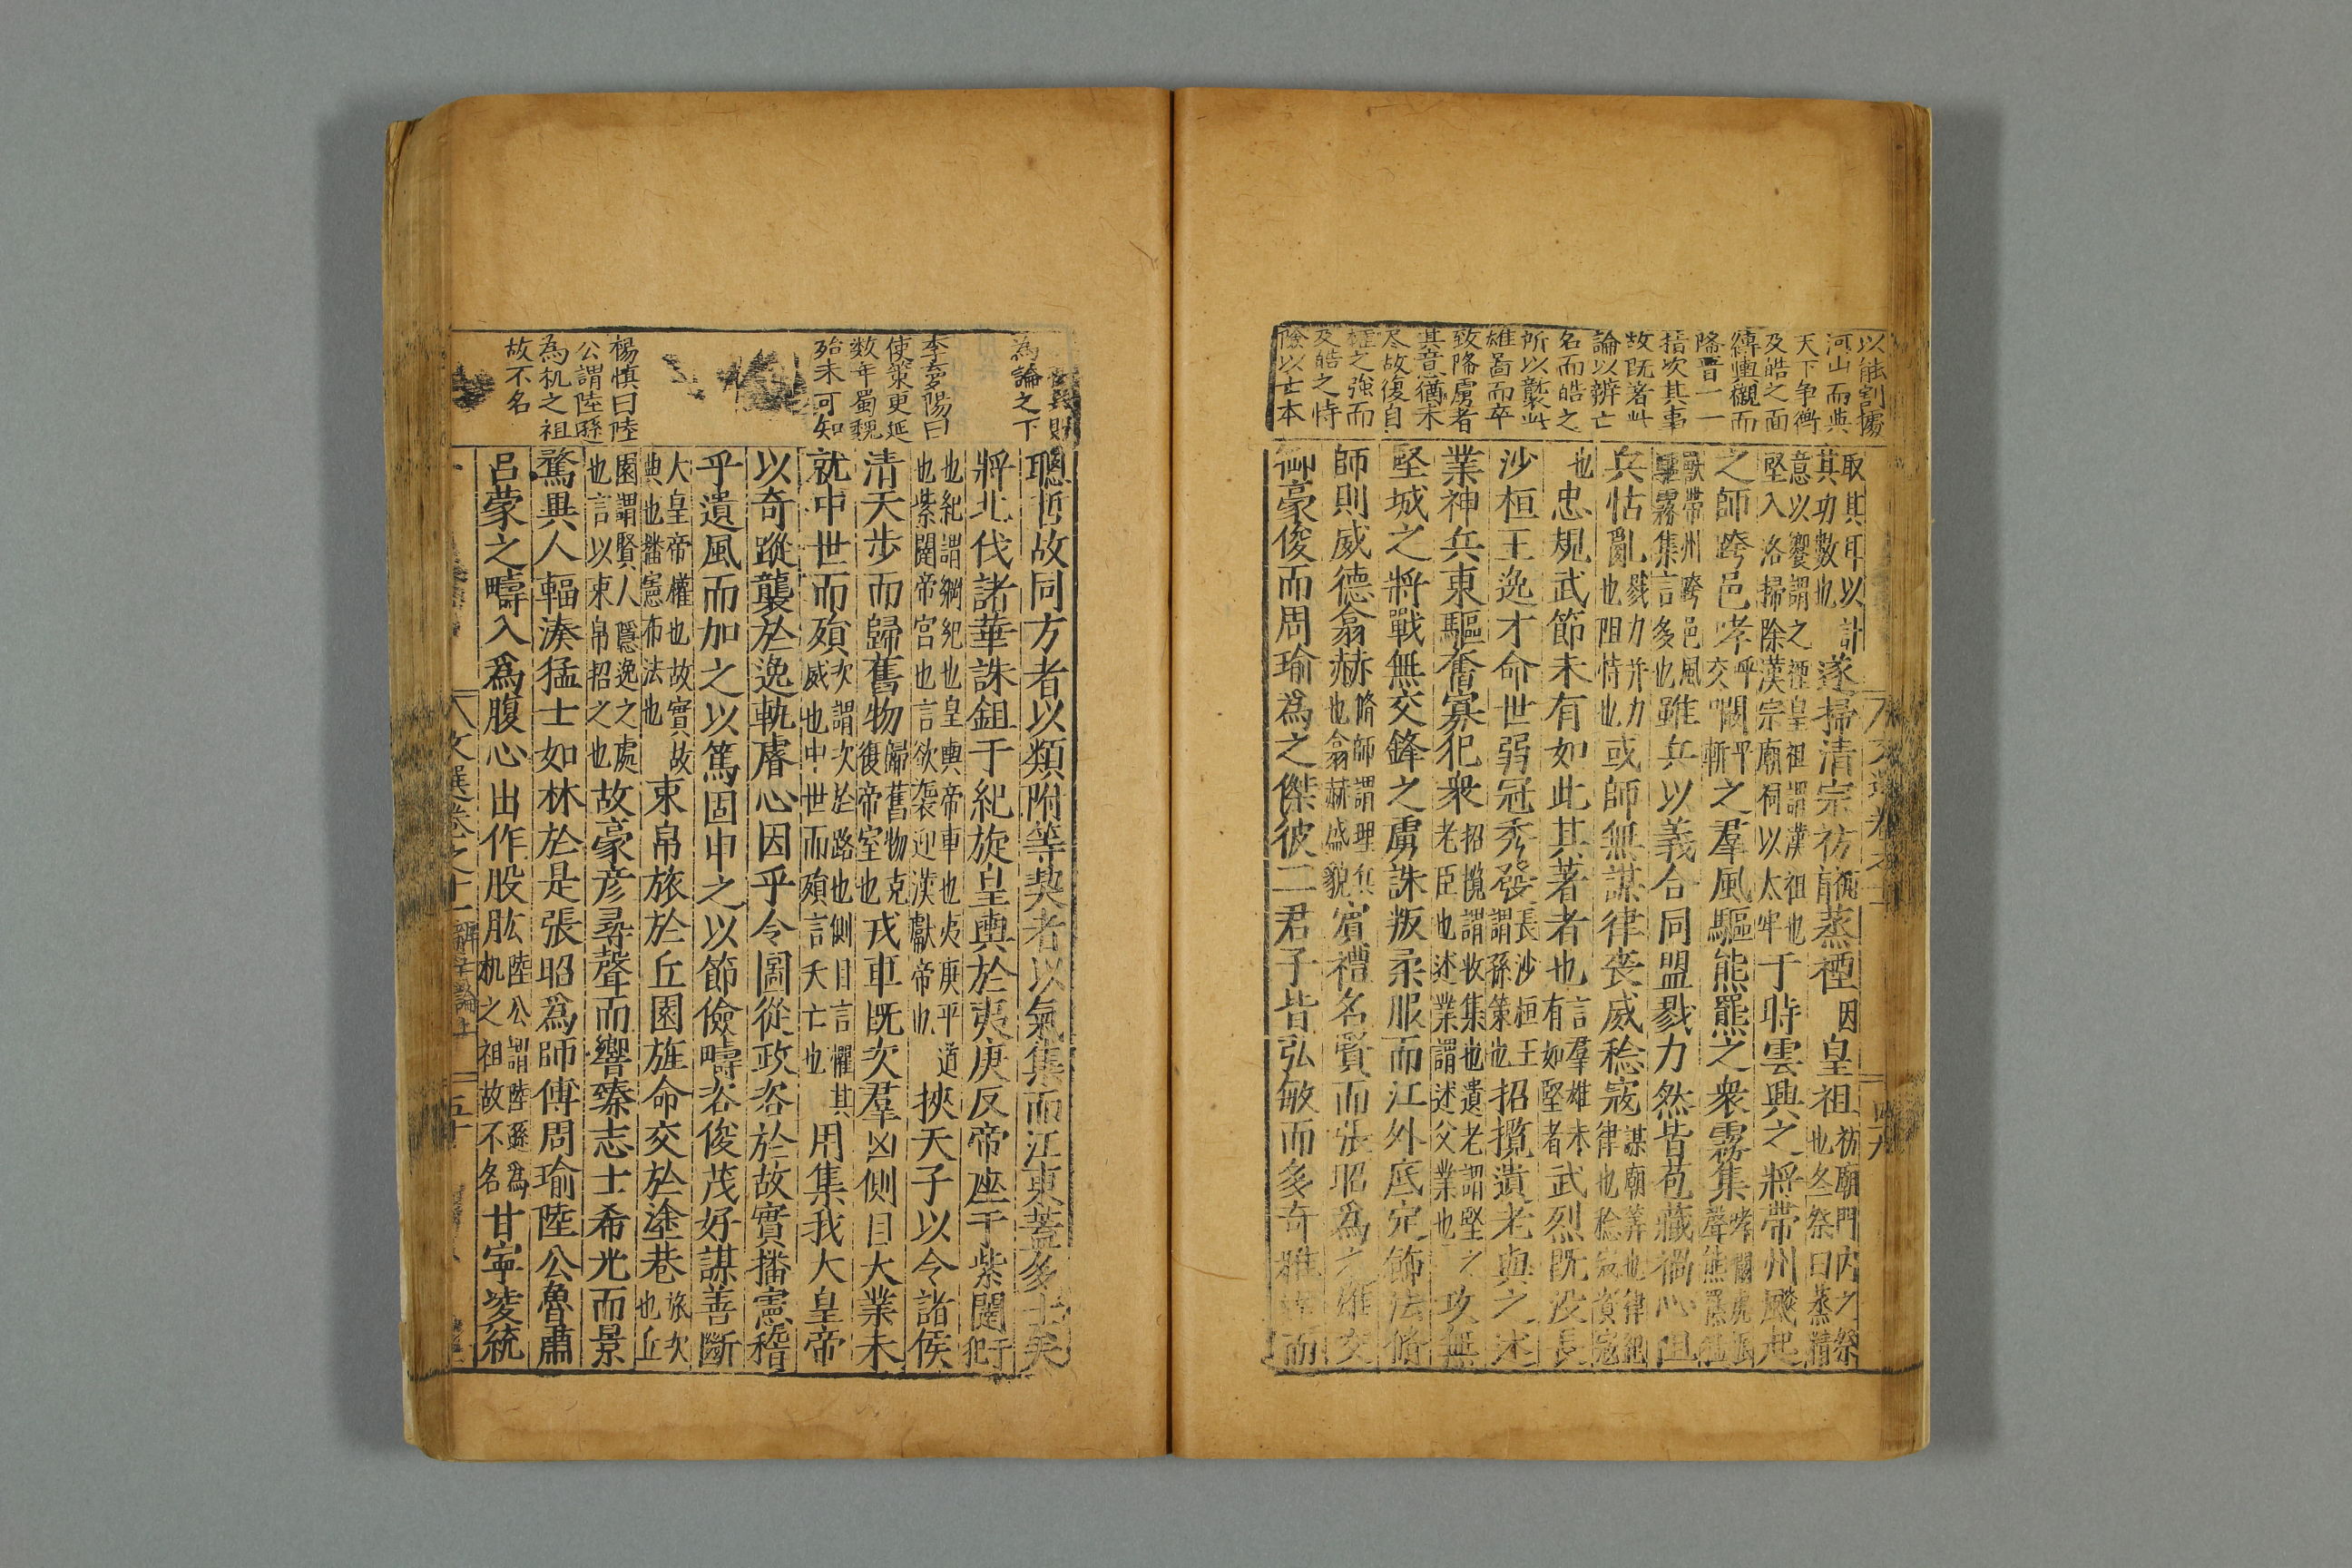 以能割據
河山而與
天下争衡
及皓之面
縛輿櫬而
降晋一一
指次其事
故既著此
論以辨亡
名而皓之
所以襲此
雄啚而卒
致降虜者
其意猶未
尽故復自
權之強而
及皓之恃
險以亡本
取其耳以計
其功數也
遂掃清宗祊蒸禋因皇祖
祊廟門内之祭
也冬祭曰蒸精
意以饗謂之禋皇祖謂漢祖也
堅入洛掃除漢宗廟祠以太牢
于時雲興之將帶州飈起
之師跨邑哮呼交闞呼斬之羣風驅熊羆之衆霧集
哮闞虎
聲熊羆猛
獸帶州跨邑風
驅霧集言多也
雖兵以義合同盟戮力然皆苞藏禍心阻
兵怙亂
戮力并力
也阻恃也
或師無謀律喪威稔寇
謀廟筭也律紀
律也稔寇
也忠規武節未有如此其著者也
言羣雄未
有如堅者
武烈既没長
沙桓王逸才命世弱冠秀發
長沙桓王
謂孫策也
招攬遺老與之述
業神兵東驅奮寡犯衆
招攬謂收集也遺老謂堅之
老臣也述業謂述父業也
攻無
堅城之將戰無交鋒之虜誅叛柔服而江外底定飾法脩
師則威德翕赫
脩師謂理兵
也翕赫盛貌
賓禮名賢而張昭爲之雄交
御豪俊而周瑜爲之傑彼二君子皆弘敏而多奇雅達而
文選卷之十一
四九
為論之下
李夢陽曰
使策更延
数年蜀魏
殆未可知
楊慎曰陸
公謂陸遜
為机之祖
故不名
聰哲故同方者以類附等契者以氣集而江東蓋多士矣
將北伐諸華誅鉏干紀旋皇輿於夷庚反帝座于紫闥
干犯
也紀謂綱紀也皇輿帝車也夷庚平道
也紫闥帝宫也言欲襲迎漢獻帝也
挾天子以令諸侯
清天步而歸舊物
歸舊物克
復帝室也
戎車既次羣凶側目大業未
就中世而殞
次謂次於路也側目言懼其
威也中世而殞言夭亡也
用集我大皇帝
以奇蹤襲於逸軌睿心因乎令圖從政咨於故實播憲稽
乎遺風而加之以篤固申之以節儉疇咨俊茂好謀善斷
大皇帝權也故實故
典也播憲布法也
束帛旅於丘園旌命交於塗巷
旅次
也丘
園謂賢人隱逸之處
也言以束帛招之也
故豪彦尋聲而響臻志士希光而景
騖異人輻湊猛士如林於是張昭爲師傅周瑜陸公魯肅
吕蒙之疇入爲腹心出作股肱
陸公謂陸遜為
机之祖故不名
甘寧凌統
文選卷之十一
辨亡論上
五十